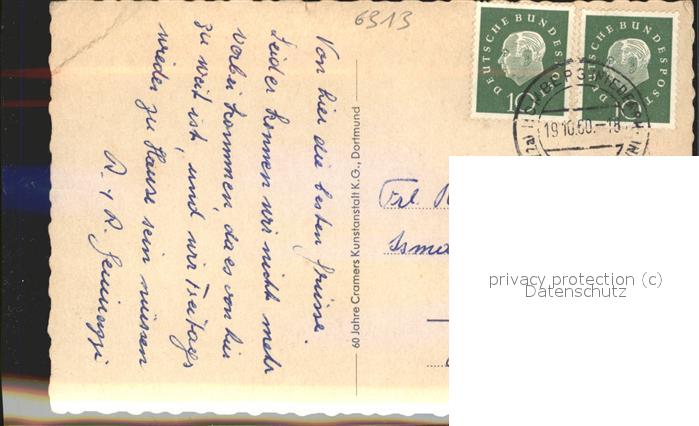 6313
Von hier die besten Grüsse.
Leider können wir nicht mehr
vorbei kommen, da es von hier
zu weit ist, und wir Freitags
wieder zu Hause sein müssen
R. + R.
60 Jahre Cramers Kunstanstalt K.G., Dortmund
DEUTSCHE BUNDESPOST
10
DEUTSCHE BUNDESPOST
10
19.10.60.-18
Frl.
privacy protection (c)
Datenschutz